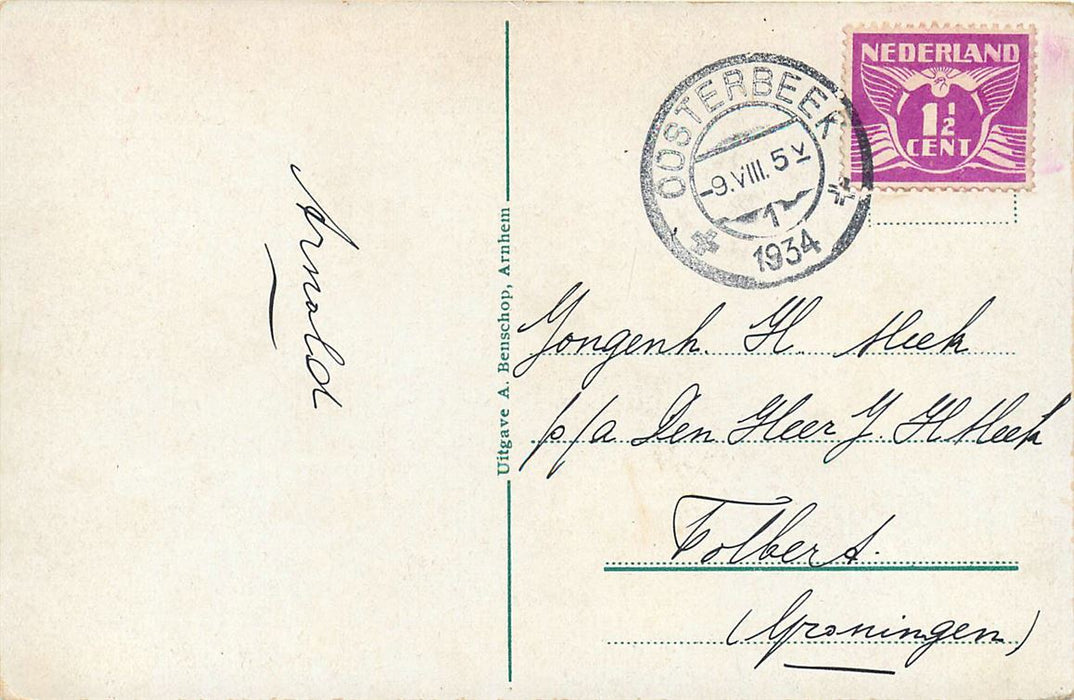 Arnold
Uitgave A. Benschop, Arnhem
NEDERLAND
1½
CENT
OOSTERBEEK
-9.VIII.5V
1
1934
Jongenh. H. Meek
p/a Den Heer J. H Meek
Tolbert.
(Groningen)